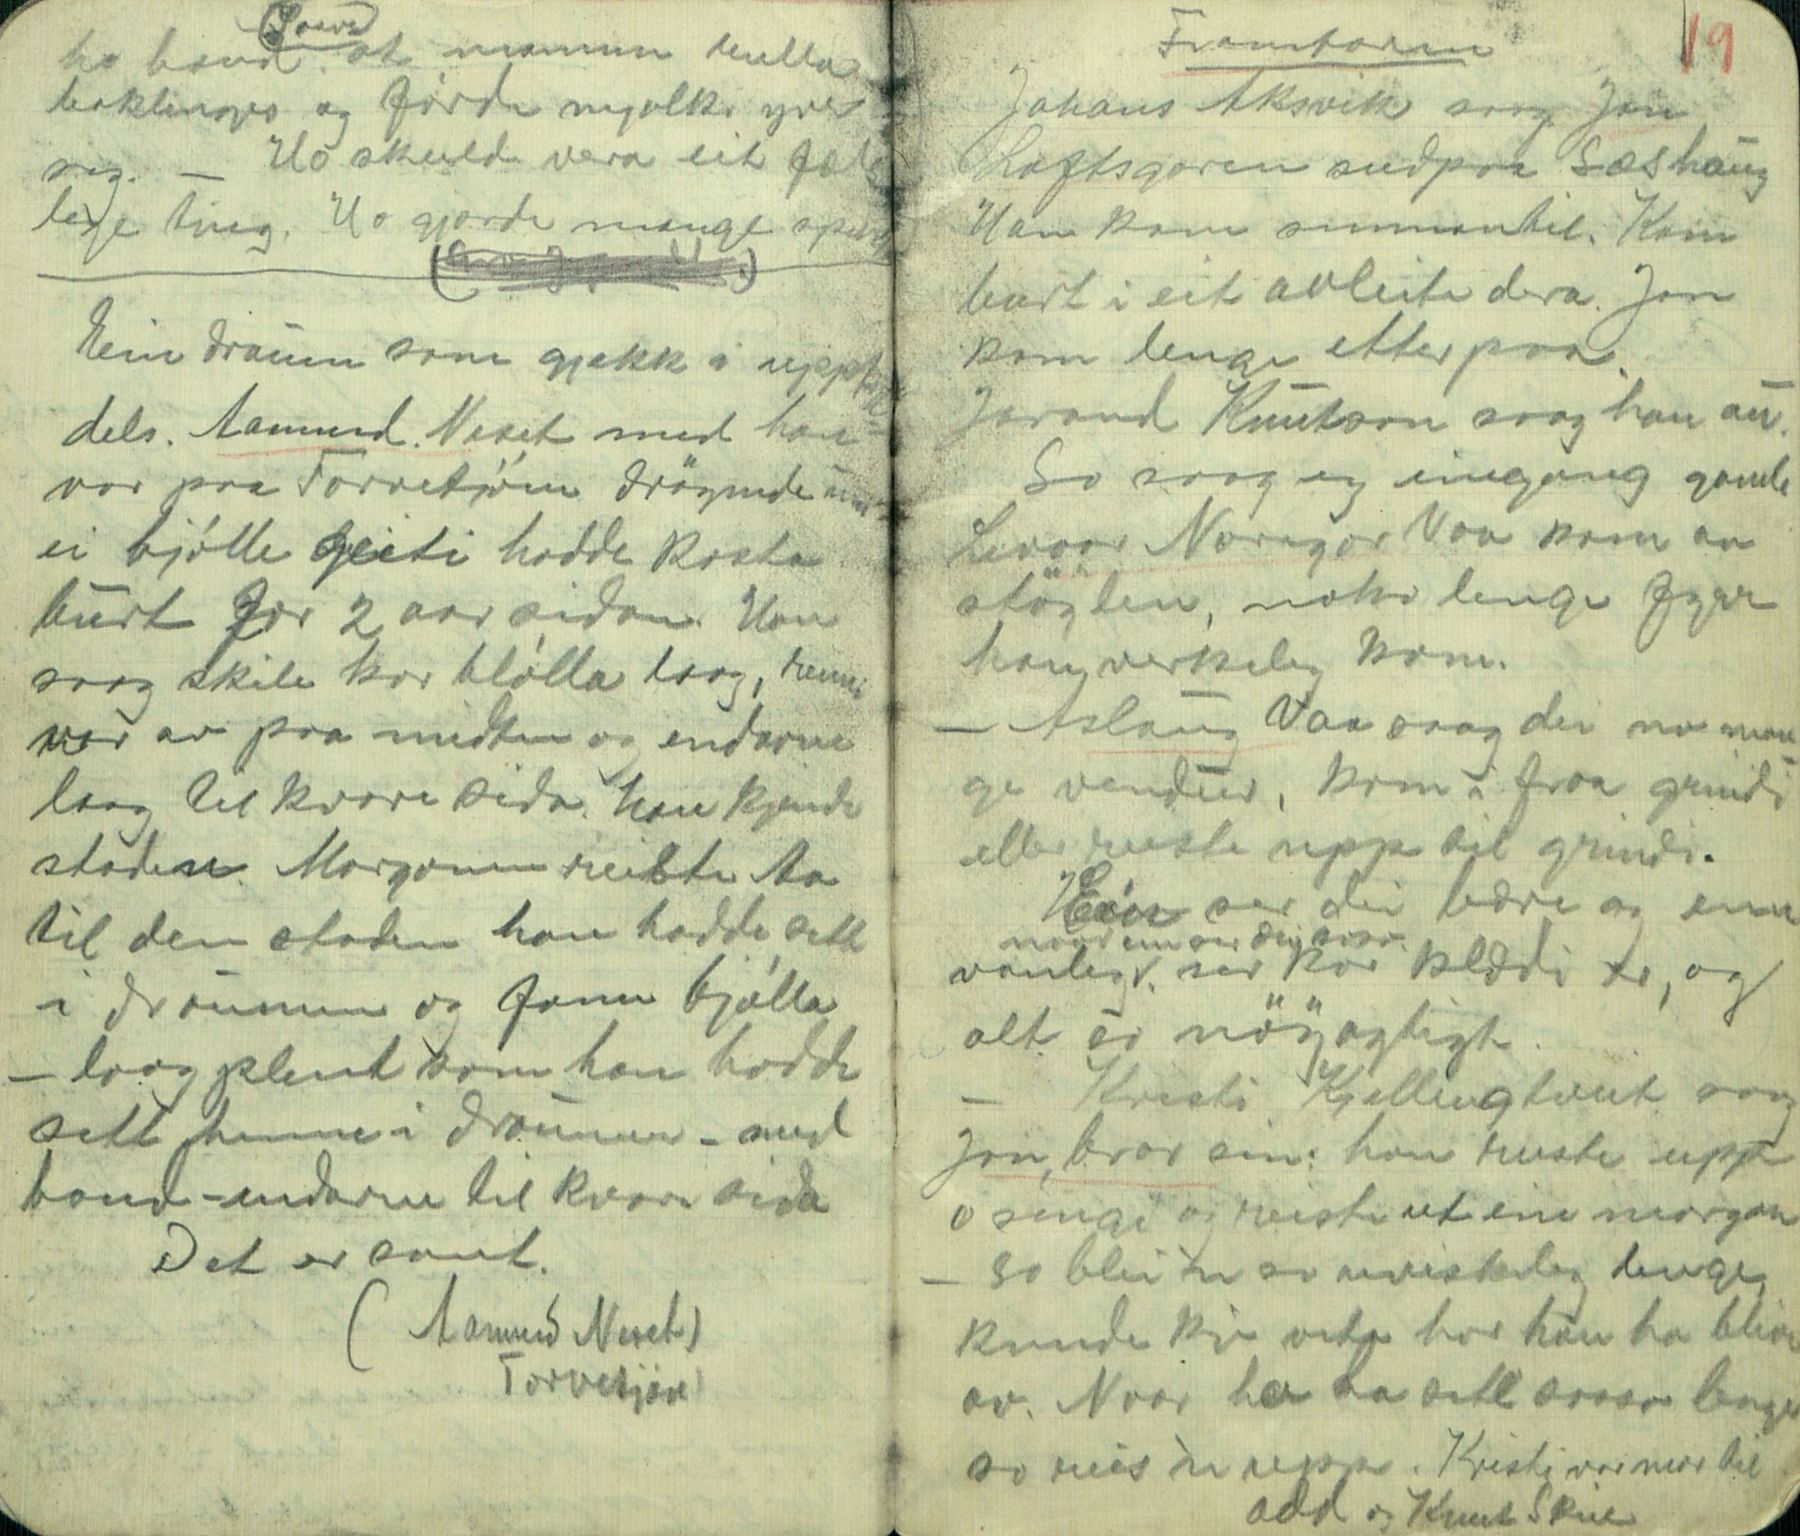 ho band at mannen trilla
baklengs og förde mjölki yve
seg. — Ho skulde vera eit fæl
lege ting. Ho gjorde mange
Ein draum som gjekk i upp
dels. Aamund Neset med han
var paa Torvetjönn drøymde
ei bjölle geiti hadde kasta
burt for 2 aar sidan. Han
saag skile kor bjölla laag,
var av paa midten og endarne
laag til kvare sida. Han kjende
staden. Morgonen reiste Aa
til den staden han hadde sett
i draumen og fann bjölla
— laag plent som han hadde
sett henne i draumen – med
band-endarne til kvare sida
Det er sant.
(Aamund Neset)
Torvetjönn
Framfaren
19
Johans Aksvik saag Jon
Loftsgaren sudpaa Sæshaug
Han kom sunnantil. Kom
burt i eit avleite dera. Jon
kom lenge etterpaa.
Jorand Knutson saag han au.
So saag eg eingong gamle
Levaar Norigar Vaa kom aa
stöglen, noko lenge fyrr
han verkeleg kom.
— Aslaug Vaa saag dei no man
ge vendur, kom i fraa grindi
eller reiste upp til grindi.
Ein ser dei bære og enn
naar ein ser dei soso.
vanlegt, ser kor klædi er, og
alt er nöyagtigt.
— Kristi Kjellingtveit saag
Jon, bror sin: han reiste upp
o sengi og reiste ut ein morgon
— So blei 'n so urisheleg lenge,
kunde kje vita hor han ha blive
av. Naar ho ha sett soso lenge
so reis 'n upp. Kristi var mor til
Add og Knut Skine